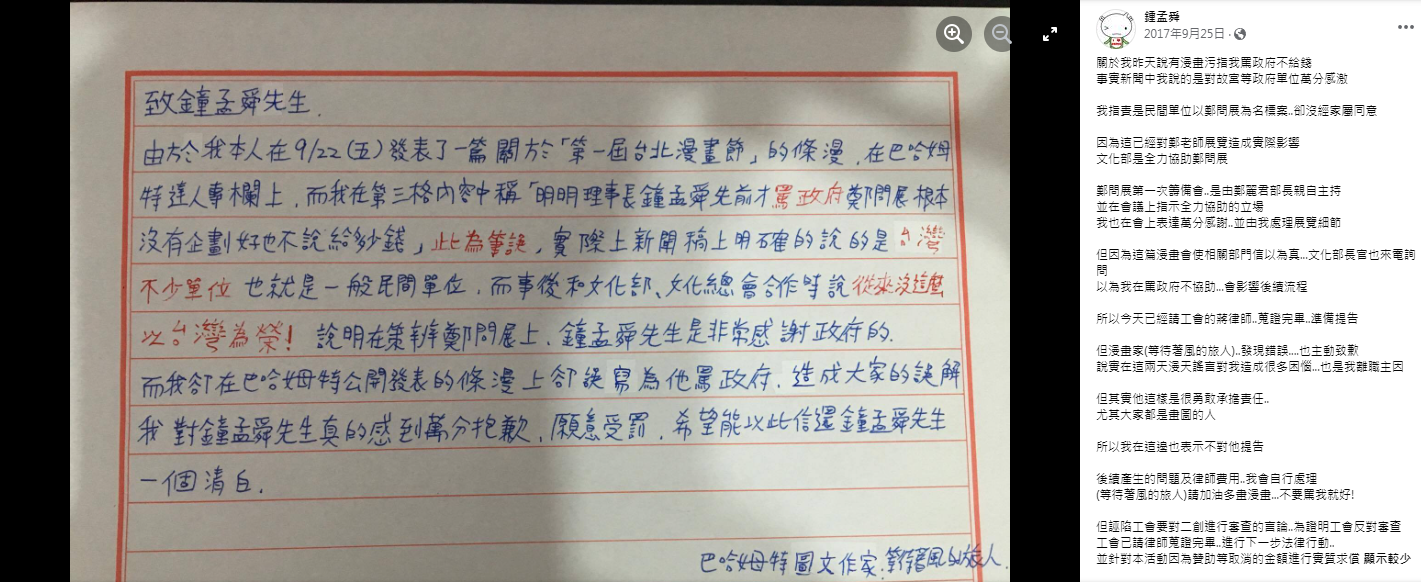 致鐘孟舜先生.
由於我本人在9/22(五)發表了一篇關於「第一屆台北漫畫節」的條漫,在巴哈姆
特達人專欄上,而我在第三格內容中稱「明明理事長鐘孟舜先前才罵政府鄭問展根本
沒有企劃好也不說給多少錢」此為筆誤,實際上新聞稿上明確的說的是台灣
不少單位也就是一般民間單位,而事後和文化部、文化總會合作時說從來沒這麼
以台灣為榮!說明在策辦鄭問展上,鐘孟舜先生是非常感謝政府的.
而我卻在巴哈姆特公開發表的條漫上卻誤寫為他罵政府,造成大家的誤解
我對鐘孟舜先生真的感到萬分抱歉,願意受罰,希望能以此信還鐘孟舜先生
一個清白.
巴哈姆特圖文作家.等待著風的旅人.
鍾孟舜
2017年9月25日
關於我昨天說有漫畫污指我罵政府不給錢
事實新聞中我說的是對故宮等政府單位萬分感激
我指責是民間單位以鄭問展為名標案..卻沒經家屬同意
因為這已經對鄭老師展覽造成實際影響
文化部是全力協助鄭問展
鄭問展第一次籌備會..是由鄭麗君部長親自主持
並在會議上指示全力協助的立場
我也在會上表達萬分感謝..並由我處理展覽細節
但因為這篇漫畫會使相關部門信以為真...文化部長官也來電詢
問
以為我在罵政府不協助...會影響後續流程
所以今天已經請工會的蔣律師..蒐證完畢..準備提告
但漫畫家(等待著風的旅人)..發現錯誤....也主動致歉
說實在這兩天漫天謠言對我造成很多困惱...也是我離職主因
但其實他這樣是很勇敢承擔責任..
尤其大家都是畫圖的人
所以我在這邊也表示不對他提告
後續產生的問題及律師費用..我會自行處理
(等待著風的旅人)請加油多畫漫畫...不要罵我就好!
但誣陷工會要對二創進行審查的言論..為證明工會反對審查
工會已請律師蒐證完畢..進行下一步法律行動..
並針對本活動因為贊助等取消的金額進行實質求償 顯示較少